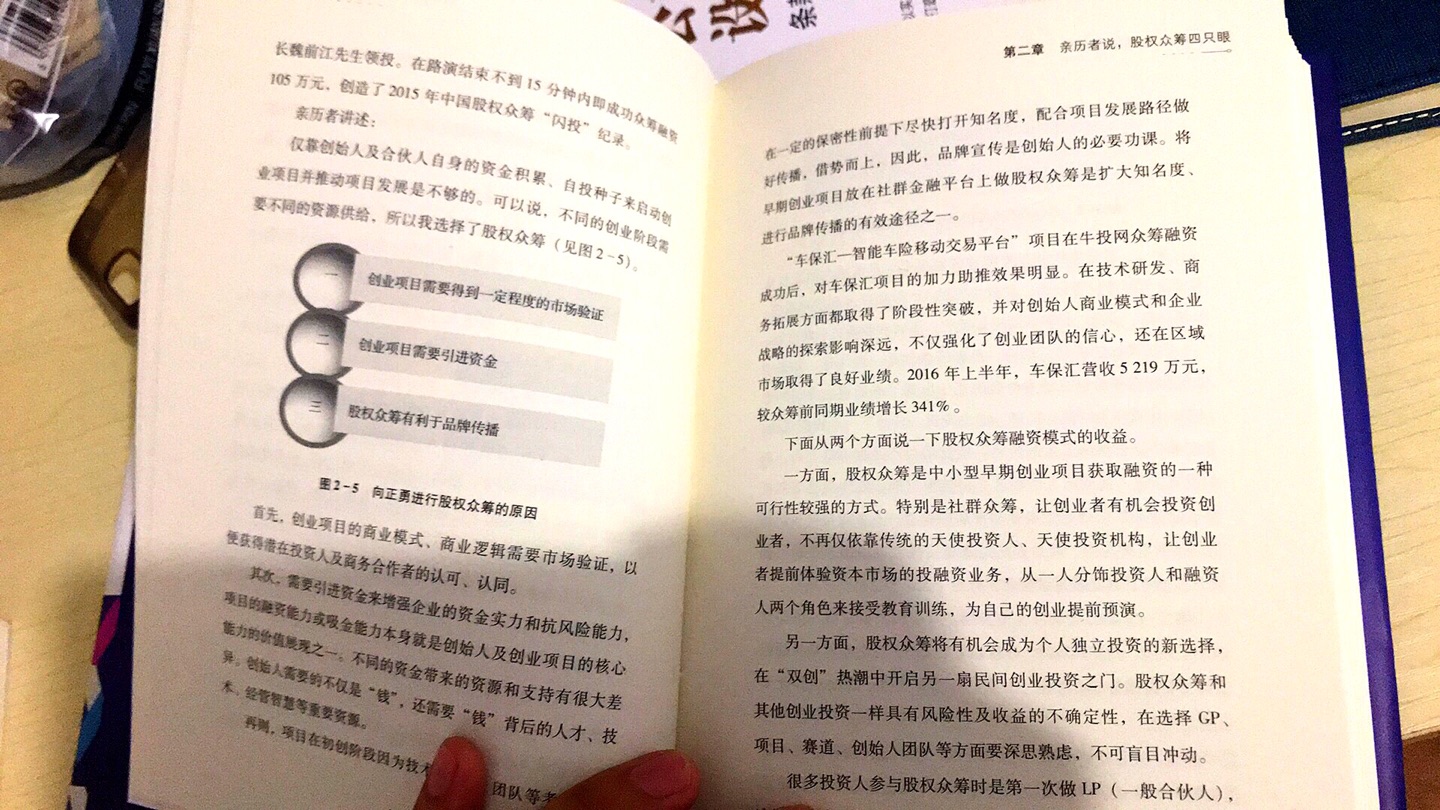 长魏前江先生领投。在路演结束不到 15 分钟内即成功众筹融资
105 万元，创造了 2015 年中国股权众筹“闪投”纪录。
亲历者讲述：
仅靠创始人及合伙人自身的资金积累、自投种子来启动创
业项目并推动项目发展是不够的。可以说，不同的创业阶段需
要不同的资源供给，所以我选择了股权众筹（见图 2－5）。
一 创业项目需要得到一定程度的市场验证
二 创业项目需要引进资金
三 股权众筹有利于品牌传播
图 2－5 向正勇进行股权众筹的原因
首先，创业项目的商业模式、商业逻辑需要市场验证，以
便获得潜在投资人及商务合作者的认可、认同。
其次，需要引进资金来增强企业的资金实力和抗风险能力，
项目的融资能力或吸金能力本身就是创始人及创业项目的核心
能力的价值展现之一。不同的资金带来的资源和支持有很大差
异。创始人需要的不仅是“钱”，还需要“钱”背后的人才、技
术、经管智慧等重要资源。
再则，项目在初创阶段因为技术 团队等
第二章 亲历者说，股权众筹四只眼
在一定的保密性前提下尽快打开知名度，配合项目发展路径做
好传播，借势而上，因此，品牌宣传是创始人的必要功课。将
早期创业项目放在社群金融平台上做股权众筹是扩大知名度、
进行品牌传播的有效途径之一。
“车保汇—智能车险移动交易平台”项目在牛投网众筹融资
成功后，对车保汇项目的加力助推效果明显。在技术研发、商
务拓展方面都取得了阶段性突破，并对创始人商业模式和企业
战略的探索影响深远，不仅强化了创业团队的信心，还在区域
市场取得了良好业绩。2016 年上半年，车保汇营收 5 219 万元，
较众筹前同期业绩增长 341%。
下面从两个方面说一下股权众筹融资模式的收益。
一方面，股权众筹是中小型早期创业项目获取融资的一种
可行性较强的方式。特别是社群众筹，让创业者有机会投资创
业者，不再仅依靠传统的天使投资人、天使投资机构，让创业
者提前体验资本市场的投融资业务，从一人分饰投资人和融资
人两个角色来接受教育训练，为自己的创业提前预演。
另一方面，股权众筹将有机会成为个人独立投资的新选择，
在“双创”热潮中开启另一扇民间创业投资之门。股权众筹和
其他创业投资一样具有风险性及收益的不确定性，在选择 GP、
项目、赛道、创始人团队等方面要深思熟虑，不可盲目冲动。
很多投资人参与股权众筹时是第一次做 LP（一般合伙人），